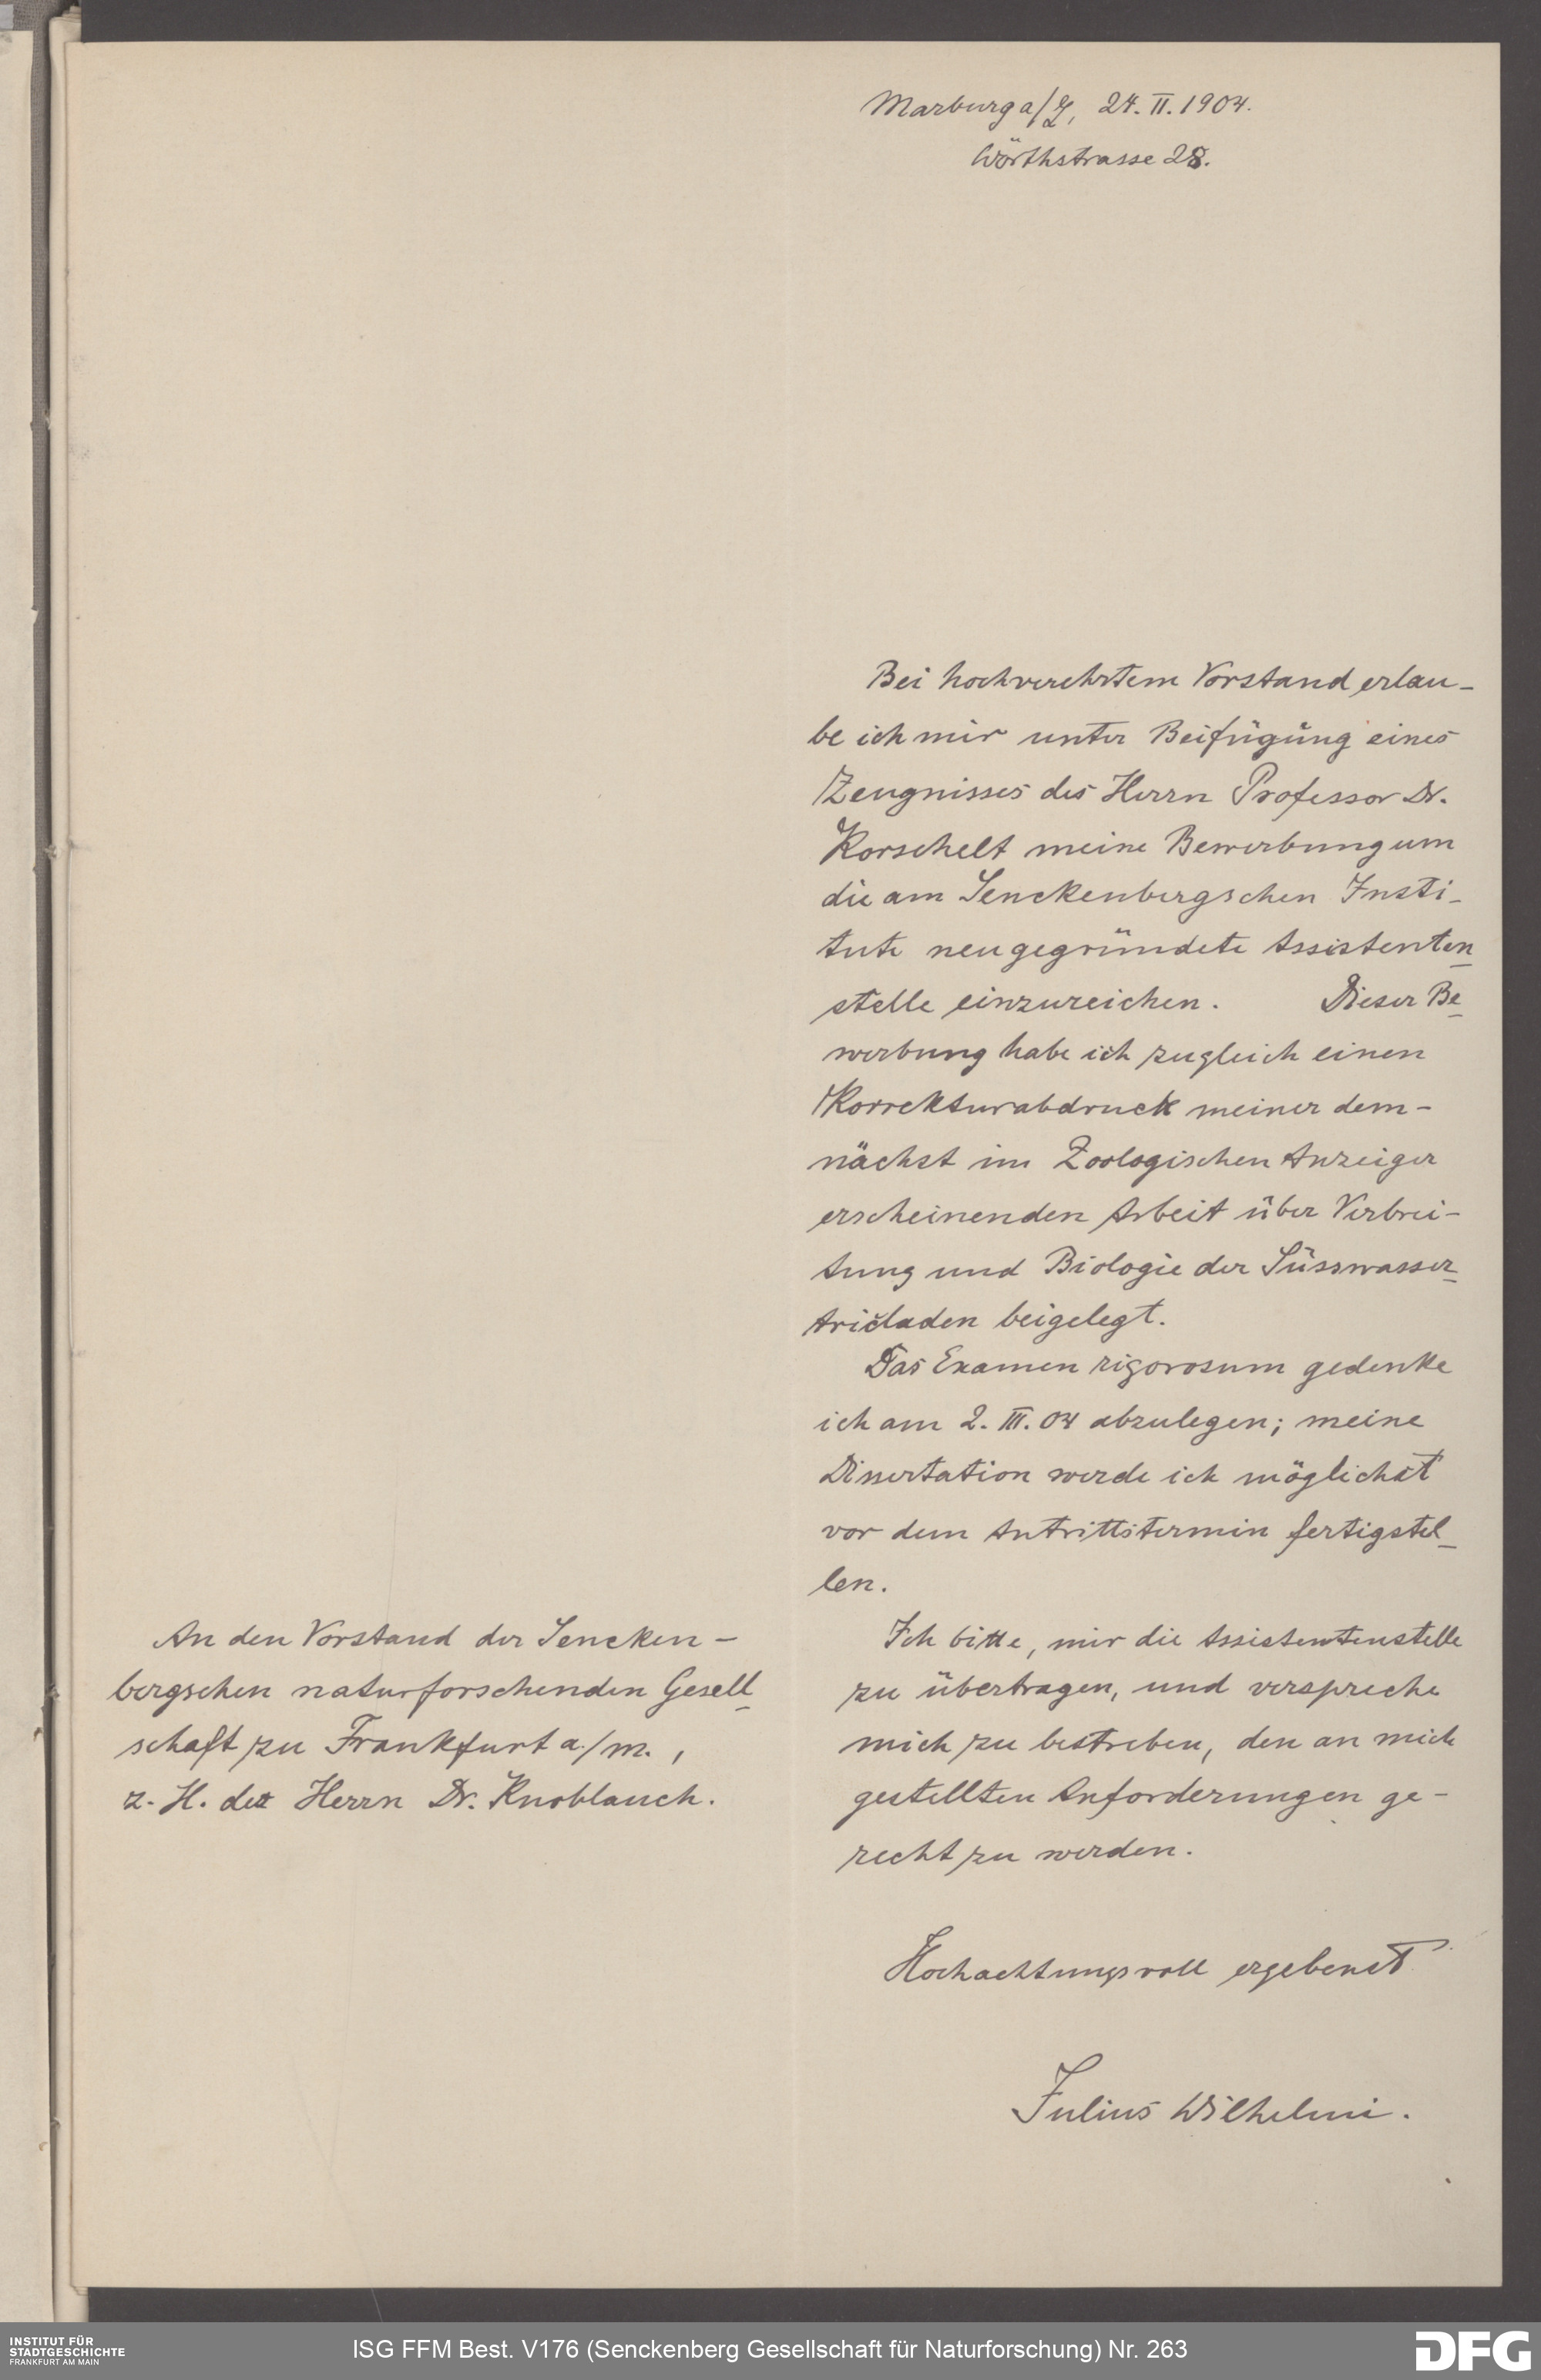 Marburg a/L, 24. II. 1904.
Wörthstrasse 28.
Bei hochverehrtem Vorstand erlau-
be ich mir unter Beifügung eines
Zeugnisses des Herrn Professor Dr.
Korschelt meine Bewerbung um
die am Senckenbergschen Insti-
tute neugegründete Assistenten
stelle einzureichen. Dieser Be
werbung habe ich zugleich einen
Korrekturabdruck meiner dem-
nächst im Zoologischen Anzeiger
erscheinenden Arbeit über Verbrei-
tung und Biologie der Süsswasser
tricladen beigelegt.
Das Examen rigorosum gedenke
ich am 2. III. 04 abzulegen; meine
Dissertation werde ich möglichst
vor dem Antrittstermin fertigstel
len.
Ich bitte, mir die Assistentenstelle
zu übertragen, und verspreche
mich zu bestreben, den an mich
gestellten Anforderungen ge-
recht zu werden.
Hochachtungsvoll ergebenst
Julius Wilhelmi.
An den Vorstand der Sencken-
bergschen naturforschenden Gesell
schaft zu Frankfurt a./M.,
z. H. des Herrn Dr. Knoblauch.
INSTITUT FÜR
STADTGESCHICHTE
FRANKFURT AM MAIN
ISG FFM Best. V176 (Senckenberg Gesellschaft für Naturforschung) Nr. 263
DFG